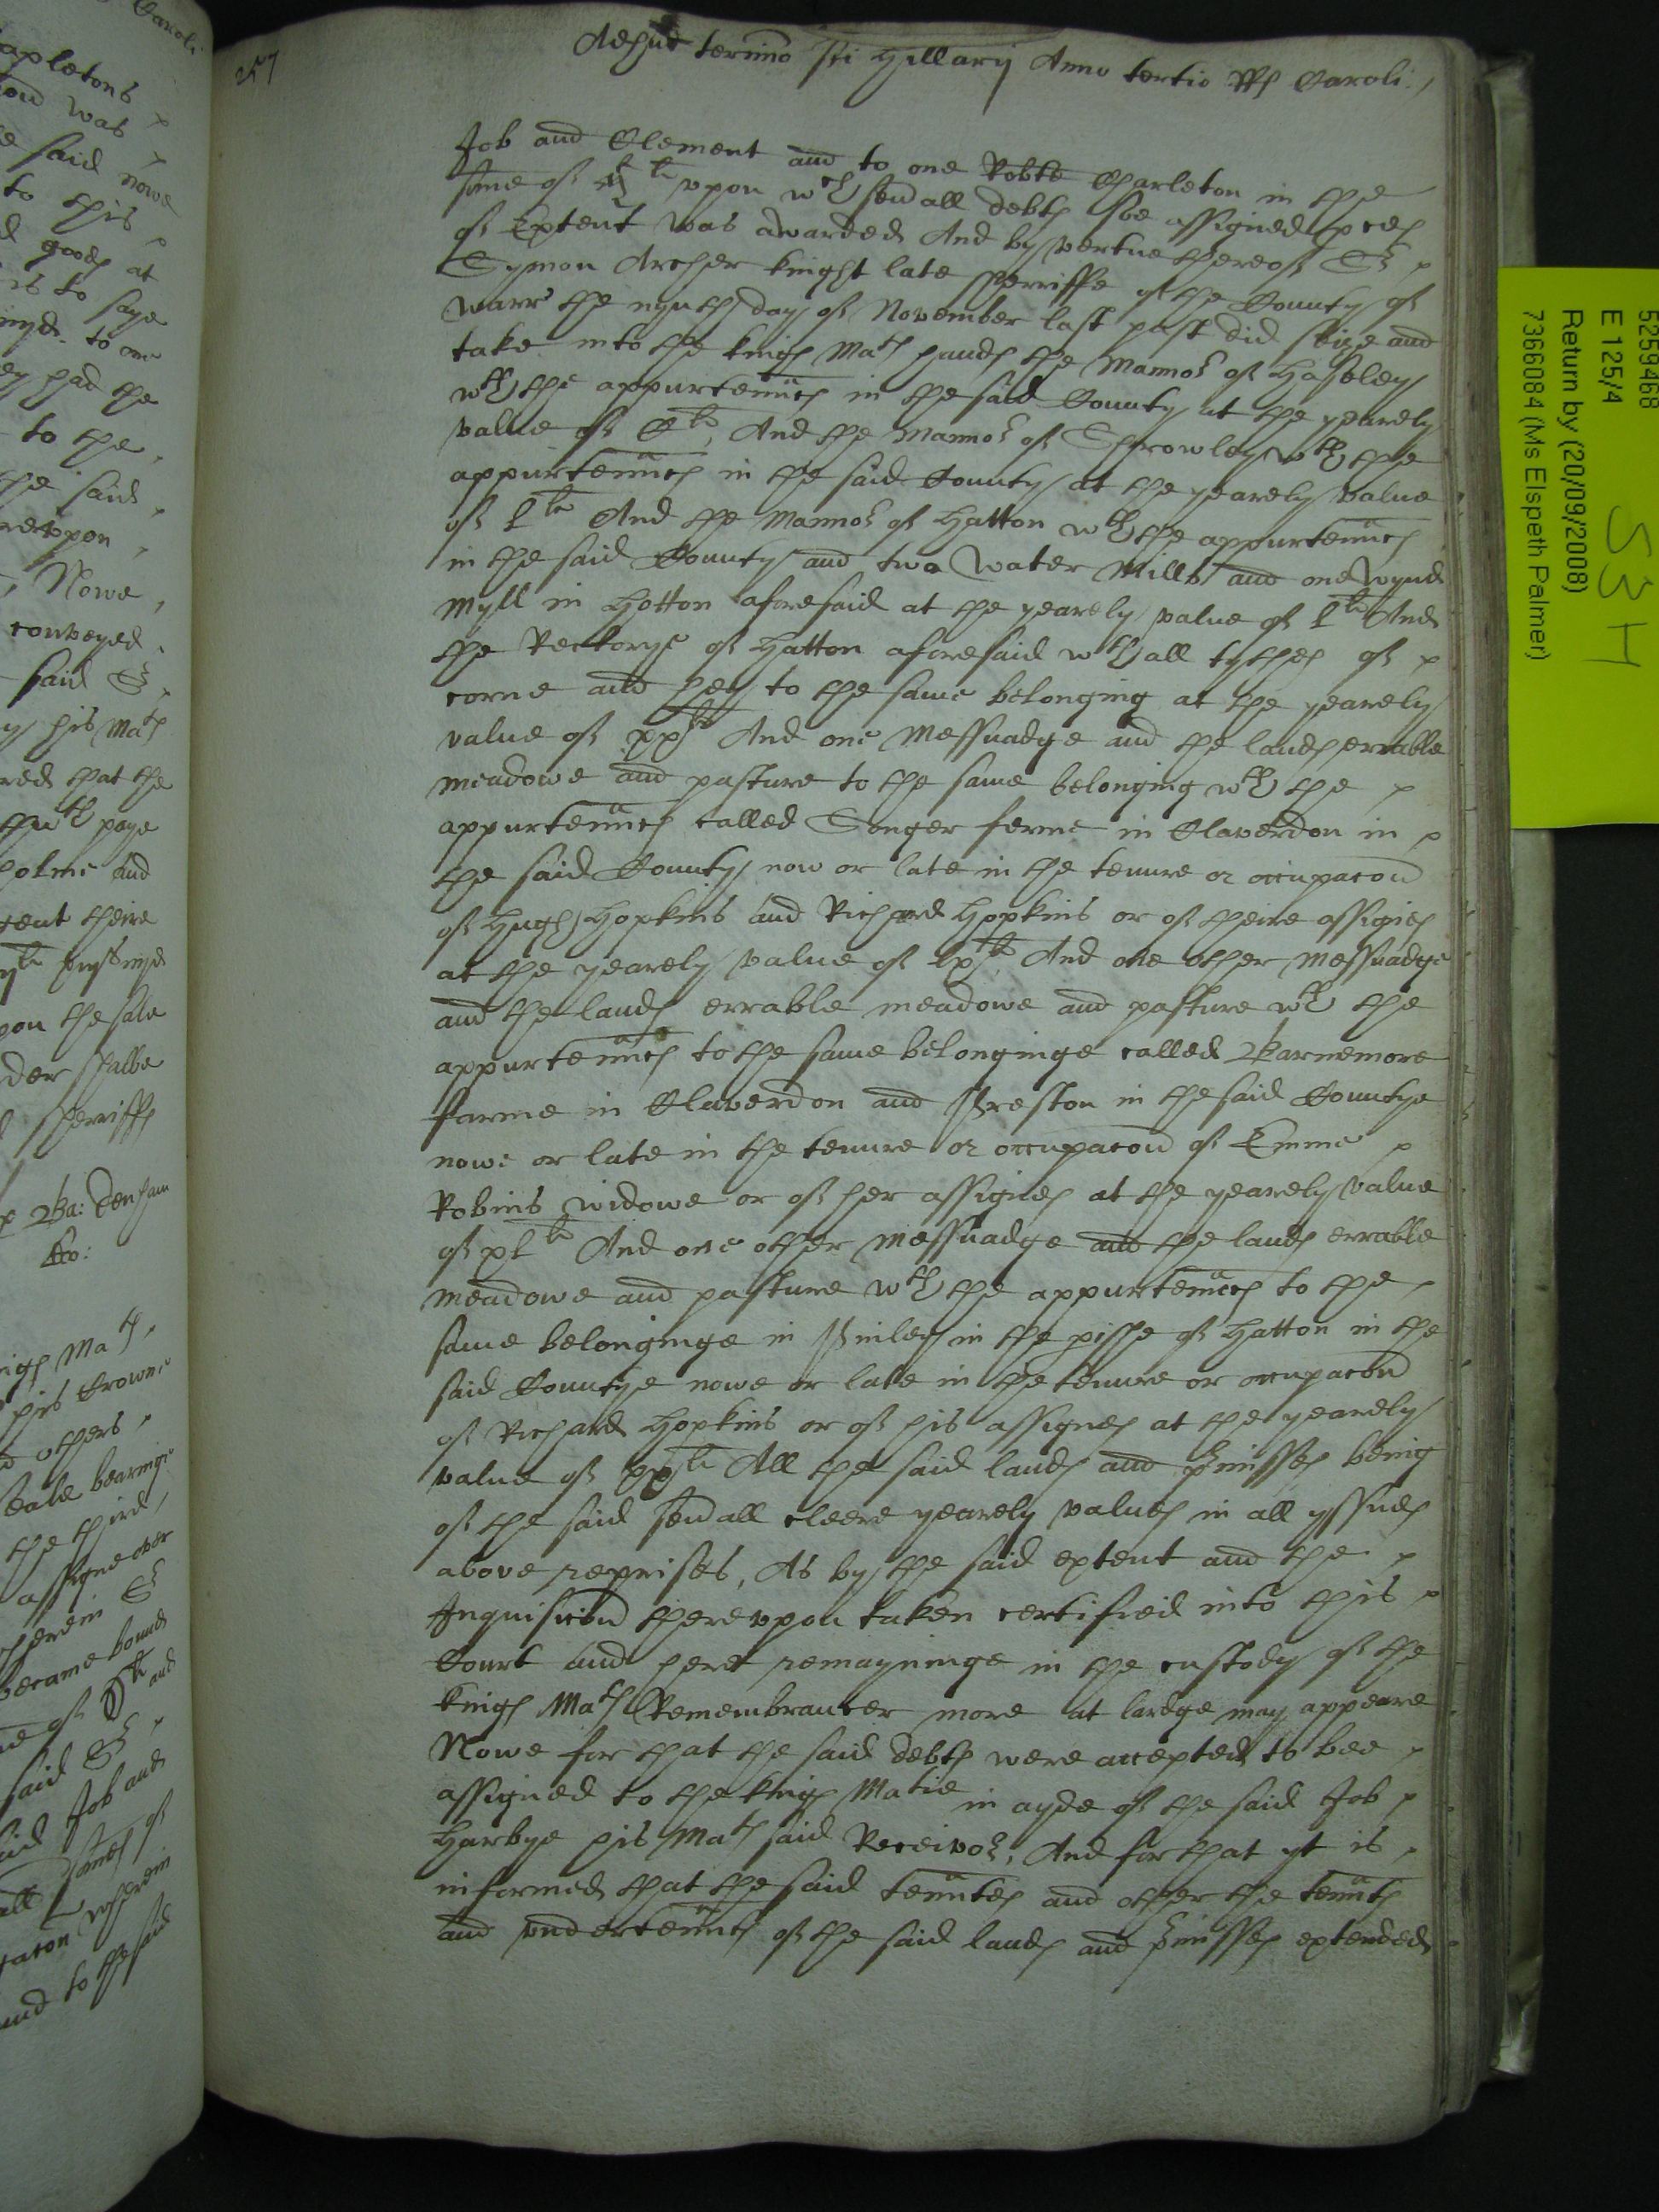 257
Adhuc termino sci Hillarij Anno tertio RRs Caroli
Job and Clement and to one Robte Charleton in the
some of li vpon wch seuall debts soe assigned pces
of Extent was awarded And by vertue thereof Sr
Symon Archer knight late Sherriffe of the County of
warr the nynth day of November last past did seize and
take into the kings Mats hands the Mannor of Haseley
wth the appurtenncs in the said County at the yearely
value of Cli, And the Mannor of Shrowley wth the
appurtenncs in the said County at the yearely value
of Lli And the Mannor of Hatton wth the appurtenncs
in the said County and two Water Mills and one Wynd
Myll in Hatton aforesaid at the yearely value of Lli And
the Rectorye of Hatton aforesaid wth all tythes of
corne and hey to the same belonging at the yearely
value of xxli And one Messuadge and the lands errable
meadowe and pasture to the same belonging wth the
appurtenncs called Songer ferme in Claverdon in
the said County now or late in the tenure or occupacon
of Hugh Hopkins and Richard Hopkins or of theire assignes
at the yearely value of lxli, And one other Messuadge
and the lands errable meadowe and pasture wth the
appurtenncs to the same belonginge called Barnemore
farme in Claverdon and Preston in the said Countye
nowe or late in the tenure or occupacon of Emme
Robins widowe or of her assignes at the yearely value
of xlli And one other Messuadge and the lands errable
meadowe and pasture wth the appurtennces to the
same belonginge in Pinley in the pishe of Hatton in the
said Countye nowe or late in the tenure or occupacon
of Richard Hopkins or of his assignes at the yearely
value of xxli All the said lands and pmisses being
of the said seuall cleere yearely values in all yssues
above reprises, As by the said extent and the
Inquisicon therevpon taken certified into this
Court and here remayninge in the custody of the
kings Mats Remembrancer more at lardge may appeare
Nowe for that the said debts were accepted to bee
assigned to the kings Matie in ayde of the said Job
Harbye his Mats said Receivor, And for that yt is
informed that the said tennts and other the tennts
and vndertennts of the said lands and pmisses extended
5259468
E 125/4
Return by (20/09/2008)
7366084 (Ms Elspeth Palmer)
53H